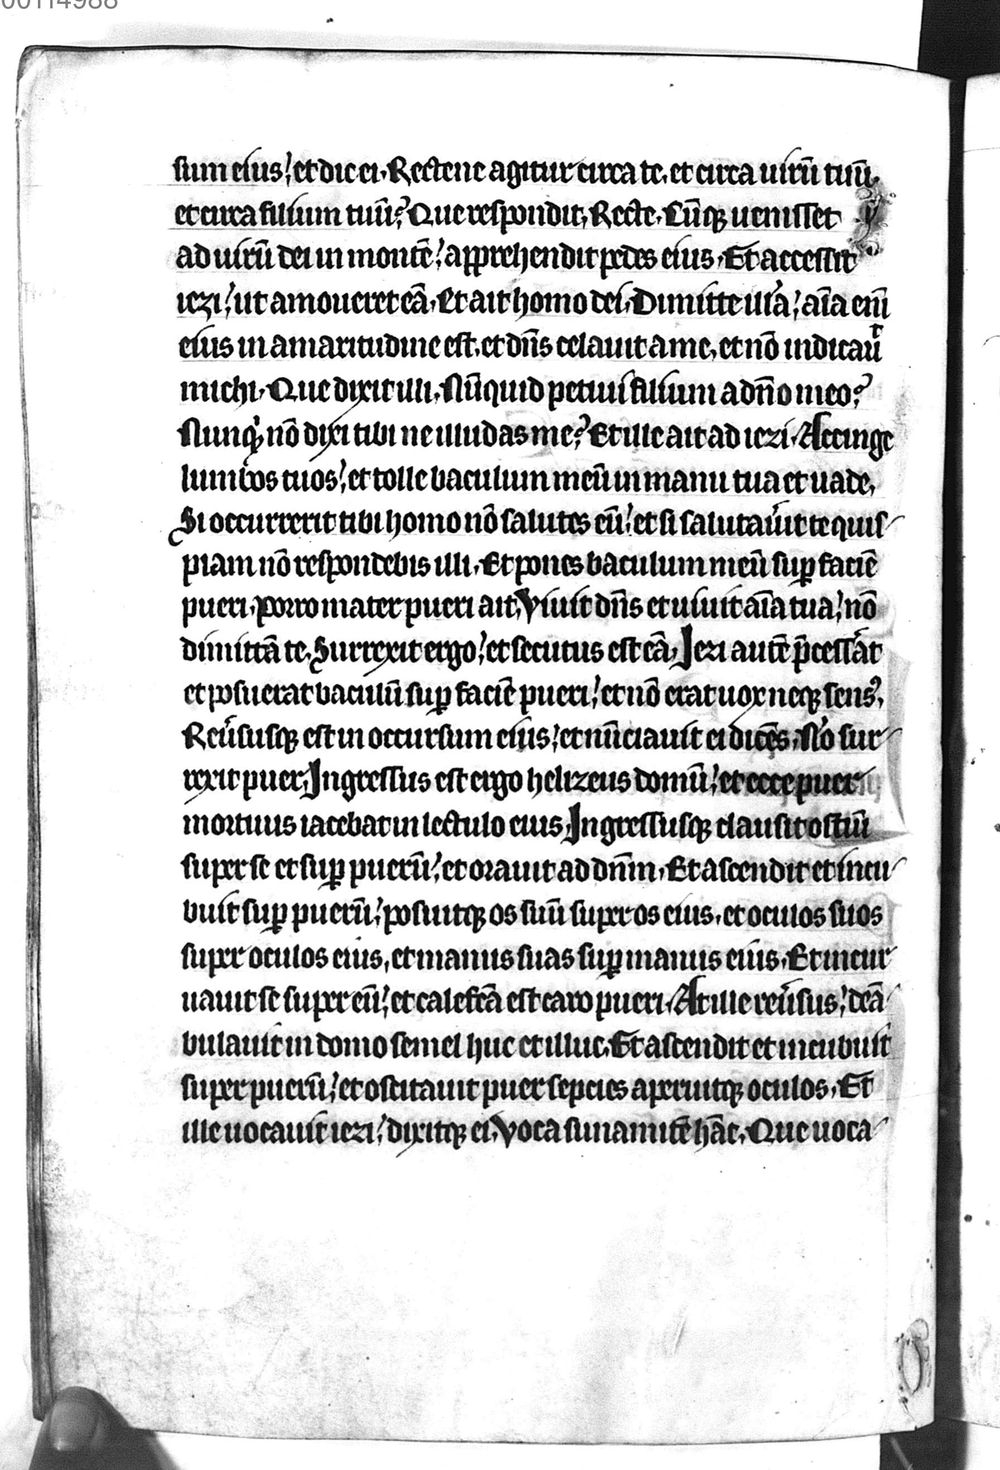 00114988
sum eius, et dic ei. Rectene agitur circa te, et circa uirū tuū,
et circa filium tuū? Que respondit, Recte. Cūqꝫ uenisset
ad uirū dei in montē, apprehendit pedes eius. Et accessit
iezi, ut amoueret eā. Et ait homo dei. Dimitte illā, aīa eni᷒
eius in amaritudine est, et dn̄s celauit a me, et nō indicau᷑
michi. Que dixit illi. Nūquid petiui filium a dn̄o meo?
Nunqͥ nō dixi tibi ne illudas me? Et ille ait ad iezi. Accinge
lumbos tuos, et tolle baculum meū in manu tua et uade,
Si occurrerit tibi homo nō salutes eū, et si salutau᷑it te quis-
piam nō respondebis illi. Et pones baculum meū suꝑ faciē
pueri. Porro mater pueri ait, Viuit dn̄s et uiuit aīa tua, nō
dimittā te. Surrexit ergo, et secutus est eā, Iezi autē p̄cess᷑at
et posuerat baculū suꝑ faciē pueri, et nō erat uox neqꝫ sensꝰ,
Reu᷑susqꝫ est in occursum eius, et nūciauit ei dicēs, Nō sur-
rexit puer, Ingressus est ergo helizeus domū, et ecce puer
mortuus iacebat in lectulo eius, Ingressusqꝫ clausit ostiū
super se et suꝑ puerū, et orauit ad dn̄m. Et ascendit et incu-
buit suꝑ puerū, posuitqꝫ os suū super os eius, et oculos suos
super oculos eius, et manus suas suꝑ manus eius. Et incur-
uauit se super eū, et calefcā est caro pueri. At ille reu᷑sus, deā-
bulauit in domo semel huc et illuc. Et ascendit et incubuit
super puerū, et oscitauit puer septies aperuitqꝫ oculos. Et
ille uocauit iezi, dixitqꝫ ei, Voca sunamitē hāc, Que uoca-